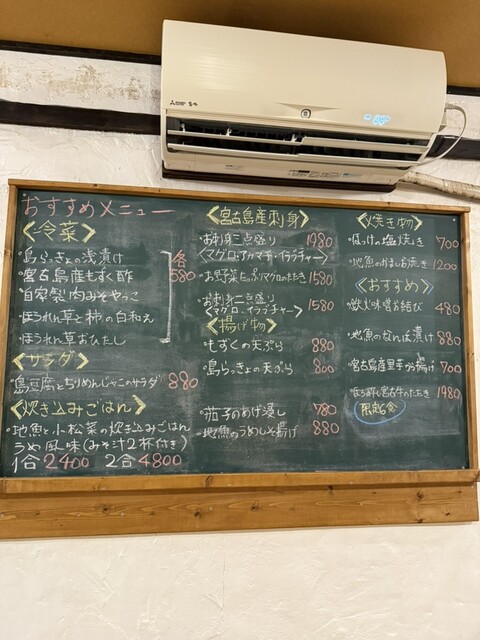 MITSUBISHI
おすすめメニュー
<冷菜>
・島らっきょの浅漬け
・宮古島産もずく酢
・自家製肉みそやっこ
・ほうれん草と柿の白和え
・ほうれん草おひたし
各
580
<サラダ>
・島豆腐とちりめんじゃこのサラダ 880
<炊き込みごはん>
・地魚と小松菜の炊き込みごはん
うめ風味(みそ汁2杯付き)
1合2400 2合4800
<宮古島産刺身>
・お刺身三点盛り 1980
<マグロ・アカマチ・イラブチャー>
・お野菜たっぷりマグロのたたき 1580
・お刺身二点盛り 1580
<マグロ・イラブチャー>
<揚げ物>
・もずくの天ぷら 880
・島らっきょの天ぷら 800
・茄子のあげ浸し 780
・地魚のうめしそ揚げ 880
<焼き物>
・ほっけの塩焼き 700
・地魚のかまお焼き 1200
<おすすめ>
・炊火味噌お結び 480
・地魚のなんば漬け 880
・宮古島産里芋お揚げ 700
・宮古牛のたたき 1980
限定6食